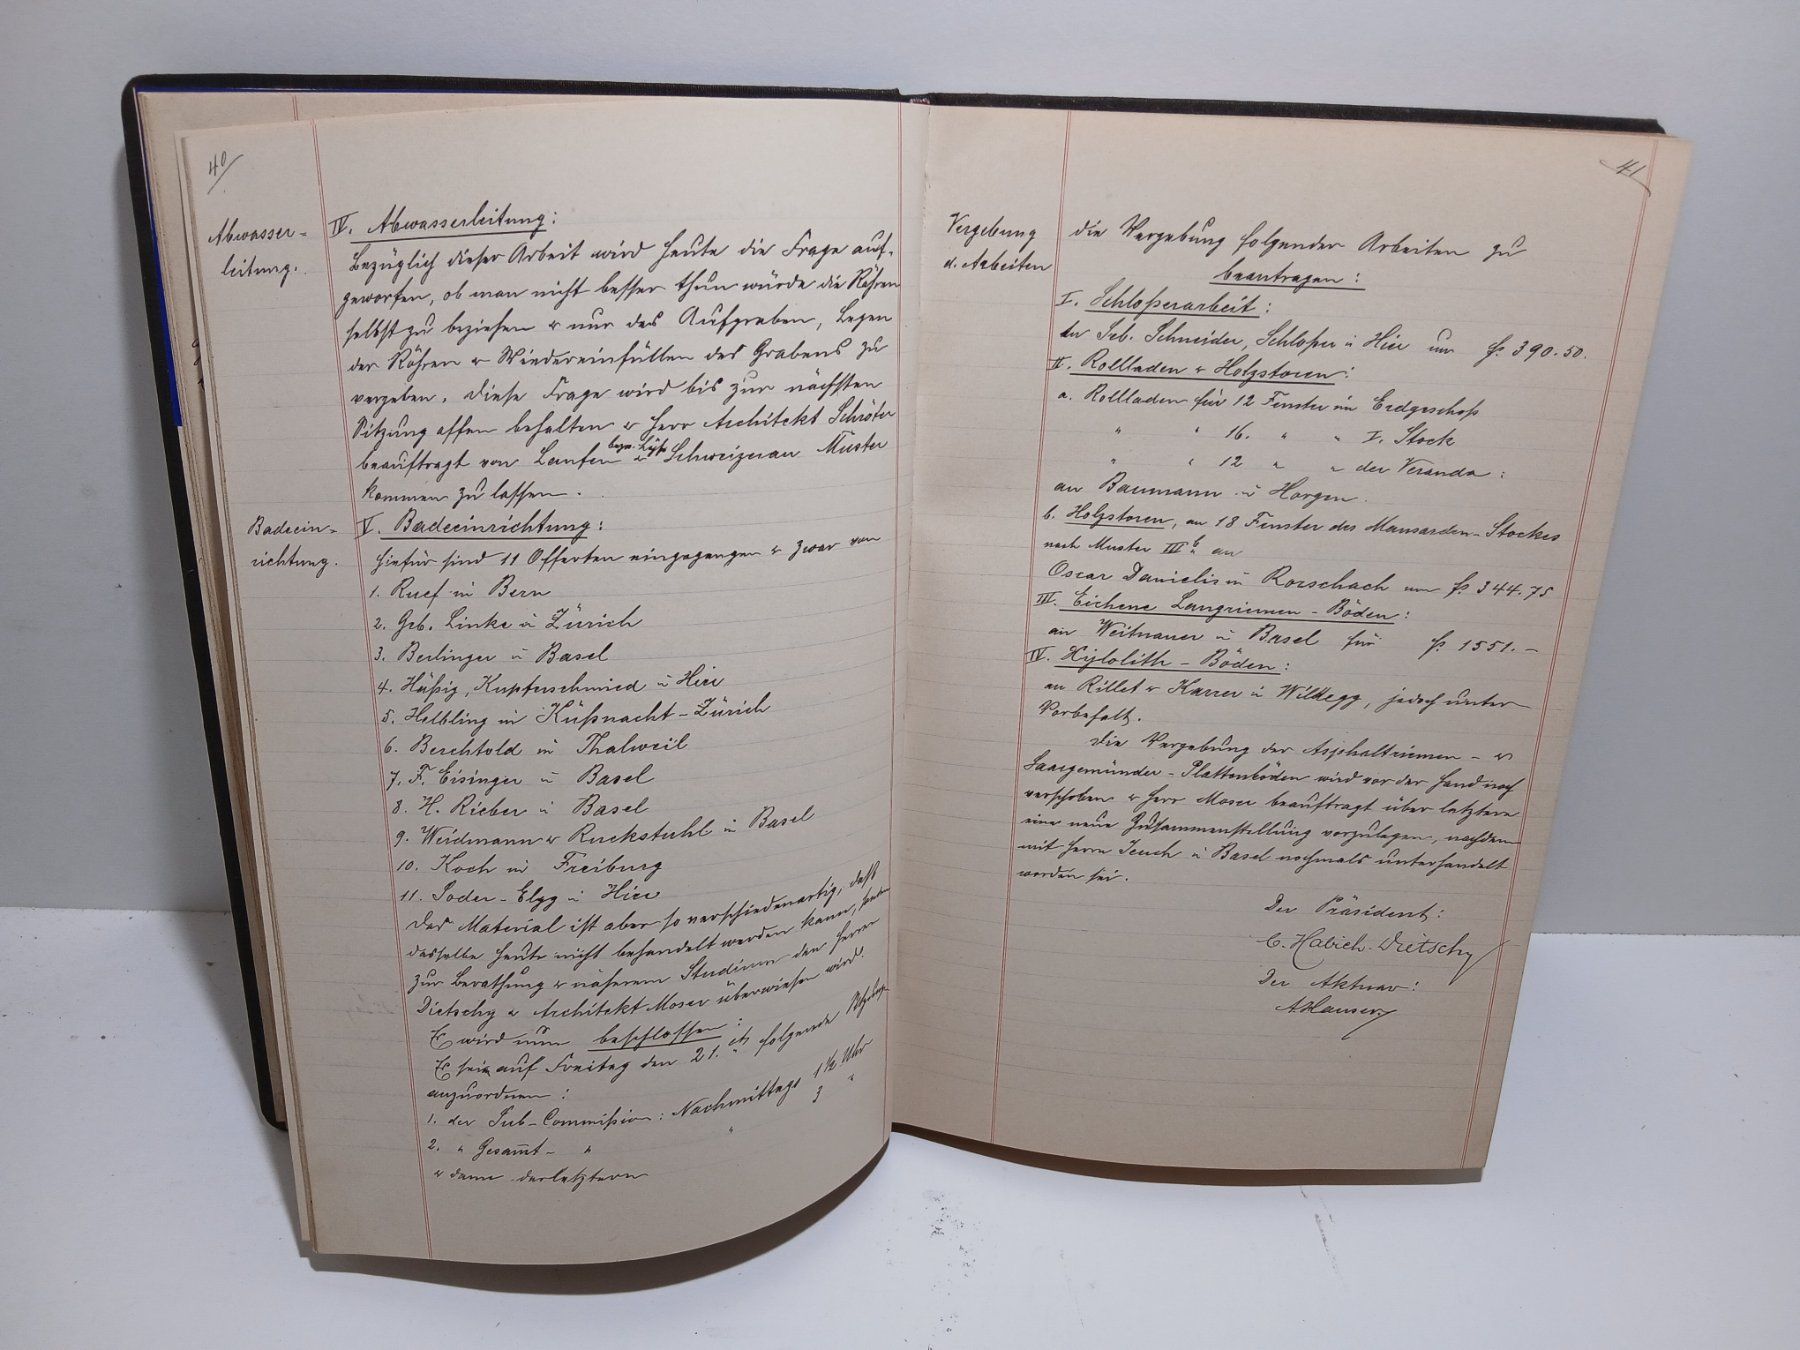 40
Abwasser-
leitung.
IV. Abwasserleitung:
Bezüglich dieser Arbeit wird heute die Frage auf-
geworfen, ob man nicht besser thun würde die Röhren
selbst zu beziehen & nur das Aufgraben, Legen
der Röhren & Wiedereinfüllen des Grabens zu
vergeben. Diese Frage wird bis zur nächsten
Sitzung offen behalten & Herr Architekt
beauftragt von Laufen Schweizerau Muster
kommen zu lassen.
Badeein-
richtung.
V. Badeeinrichtung:
Hiefür sind 11 Offerten eingegangen & zwar von
1. Ruef in Bern
2. Geb. Linke in Zürich
3. Berlinger in Basel
4. Häßig, Kupferschmied in Hier
5. Helbling in Küßnacht-Zürich
6. Berchtold in Thalweil
7. F. Eisinger in Basel
8. H. Rieber in Basel
9. Weidmann & Ruckstuhl in Basel
10. Koch in Freiburg
11. Soder-Elgg in Hier
Das Material ist aber so verschiedenartig, daß
dasselbe heute nicht behandelt werden kann, sondern
zur Berathung & näherem Studium den Herren
Dietschy & Architekt Moser überwiesen wird.
Es wird nun beschlossen:
Es sei auf Freitag den 21. ct. folgende Sitzungen
anzuordnen:
1. der Sub-Commißion: Nachmittags 1½ Uhr
2. " Gesam̅t- " " 3 "
& dann der letztern
41
Vergebung
d. Arbeiten
die Vergebung folgender Arbeiten zu
beantragen:
I. Schloßerarbeit:
an Seb. Schneider, Schloßer in Hier um fr. 390.50.
II. Rollladen & Holzstoren:
a. Rollladen für 12 Fenster im Erdgeschoß
" " 16. " " I. Stock
" " 12 " " der Veranda:
an Baumann in Horgen.
b. Holzstoren, an 18 Fenster des Mansarden-Stockes
nach Muster III b an
Oscar Danielis in Rorschach um fr. 344.75
III. Eichene Langriemen-Böden:
an Weitnauer in Basel für fr. 1551.-
IV. Xylolith-Böden:
an Rillet & Karrer in Wildegg, jedoch unter
Vorbehalt.
Die Vergebung der Asphaltriemen- &
Saargemünder-Plattenböden wird vor der Hand noch
verschoben & Herr Moser beauftragt über letztere
eine neue Zusammenstellung vorzulegen, nachdem
mit Herrn Jeuch in Basel nochmals unterhandelt
worden sei.
Der Präsident:
C. Habich-Dietschy
Der Aktuar:
A Hauser